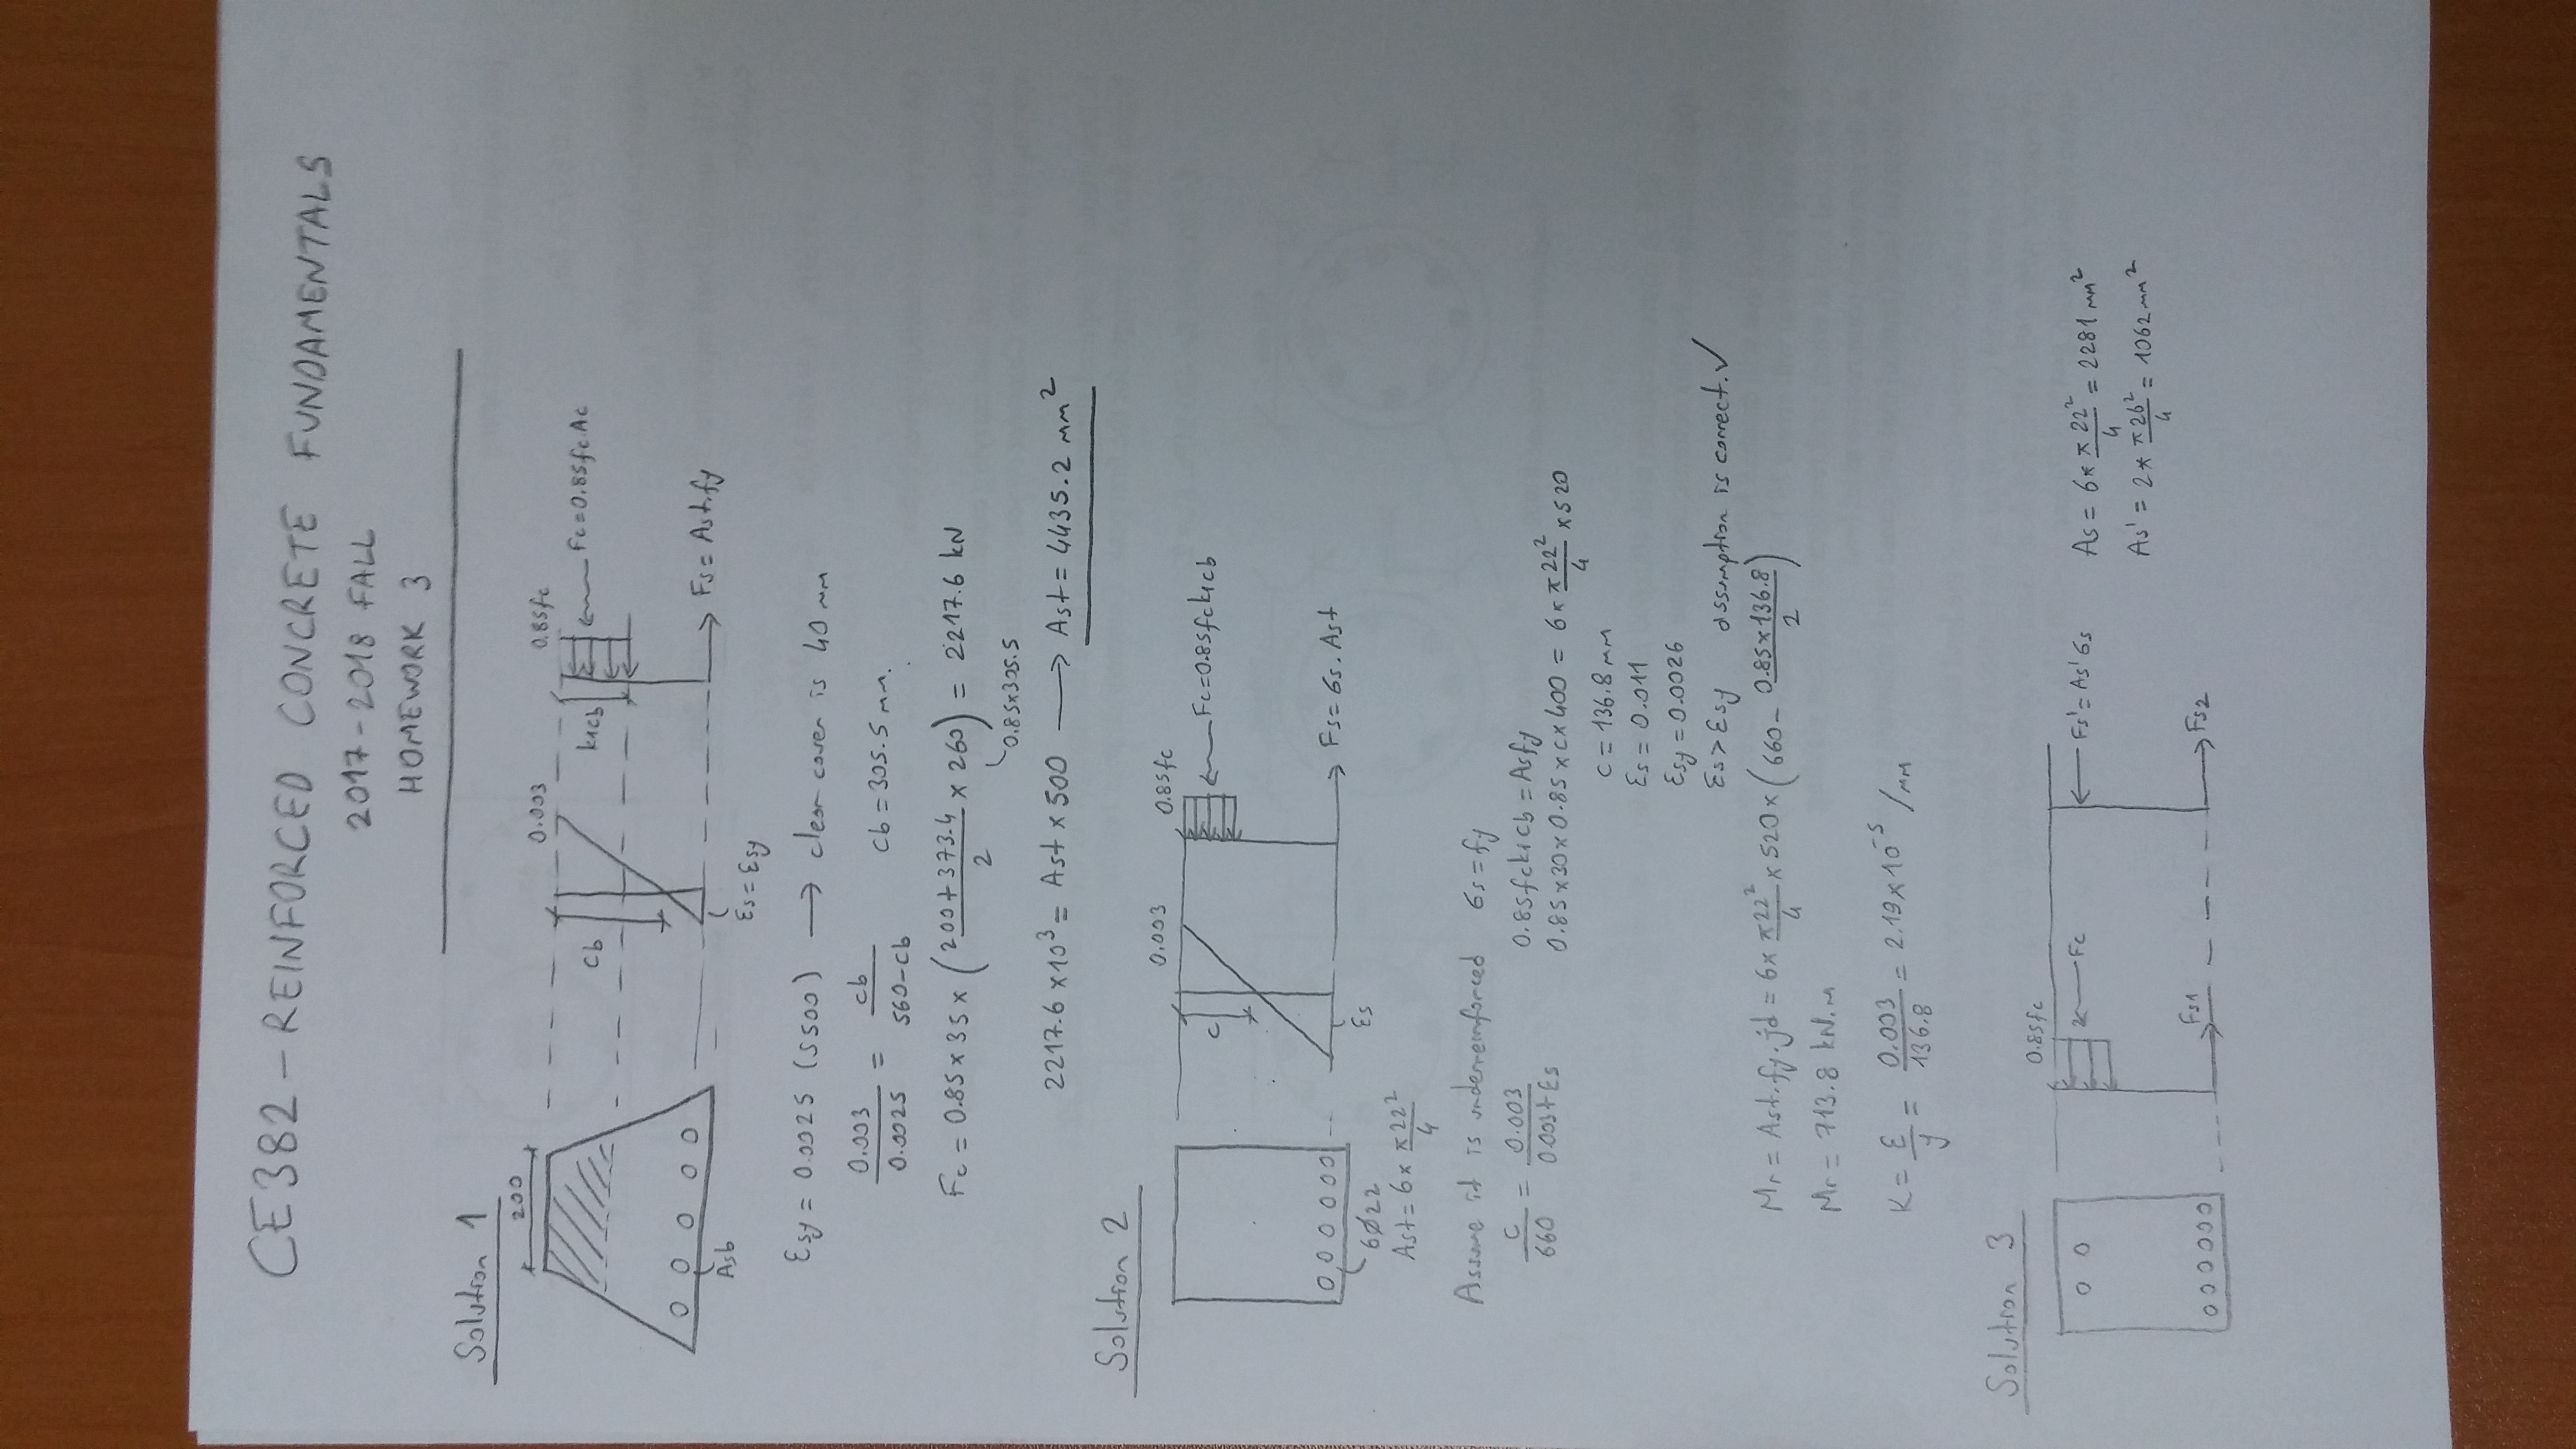 CE382 - REINFORCED CONCRETE FUNDAMENTALS
2017-2018 FALL
HOMEWORK 3
Solution 1
200
0.003
0.85fc
cb
k1cb
Fc=0.85fcAc
Asb
Fs = Ast.fy
Es = Esy
Esy = 0.0025 (S500) → clear cover is 40 mm
0.003/0.0025 = cb/560-cb    cb = 305.5 mm.
Fc = 0.85 x 35 x (200+373.4/2 x 260) = 2217.6 kN
0.85x305.5
2217.6 x10³ = Ast x 500 → Ast = 4435.2 mm²
Solution 2
0.003
0.85fc
c
Fc=0.85fck1cb
Fs = 6s. Ast
Es
6Ø22
Ast = 6x π22²/4
Assume it is underreinforced    6s = fy
c/660 = 0.003/0.003+Es    0.85fck1cb = Asfy
0.85x30x0.85xcx400 = 6x π22²/4 x520
c = 136.8 mm
Es = 0.011
Esy = 0.0026
Es > Esy    assumption is correct. ✓
Mr = Ast.fy.jd = 6x π22²/4 x 520x (660 - 0.85x136.8/2)
Mr = 713.8 kN.m
K = ε/y = 0.003/136.8 = 2.19x10⁻⁵ /mm
Solution 3
0.85fc
Fc
Fs' = As' 6s
As = 6* π22²/4 = 2281 mm²
As' = 2* π26²/4 = 1062 mm²
Fs1
Fs2